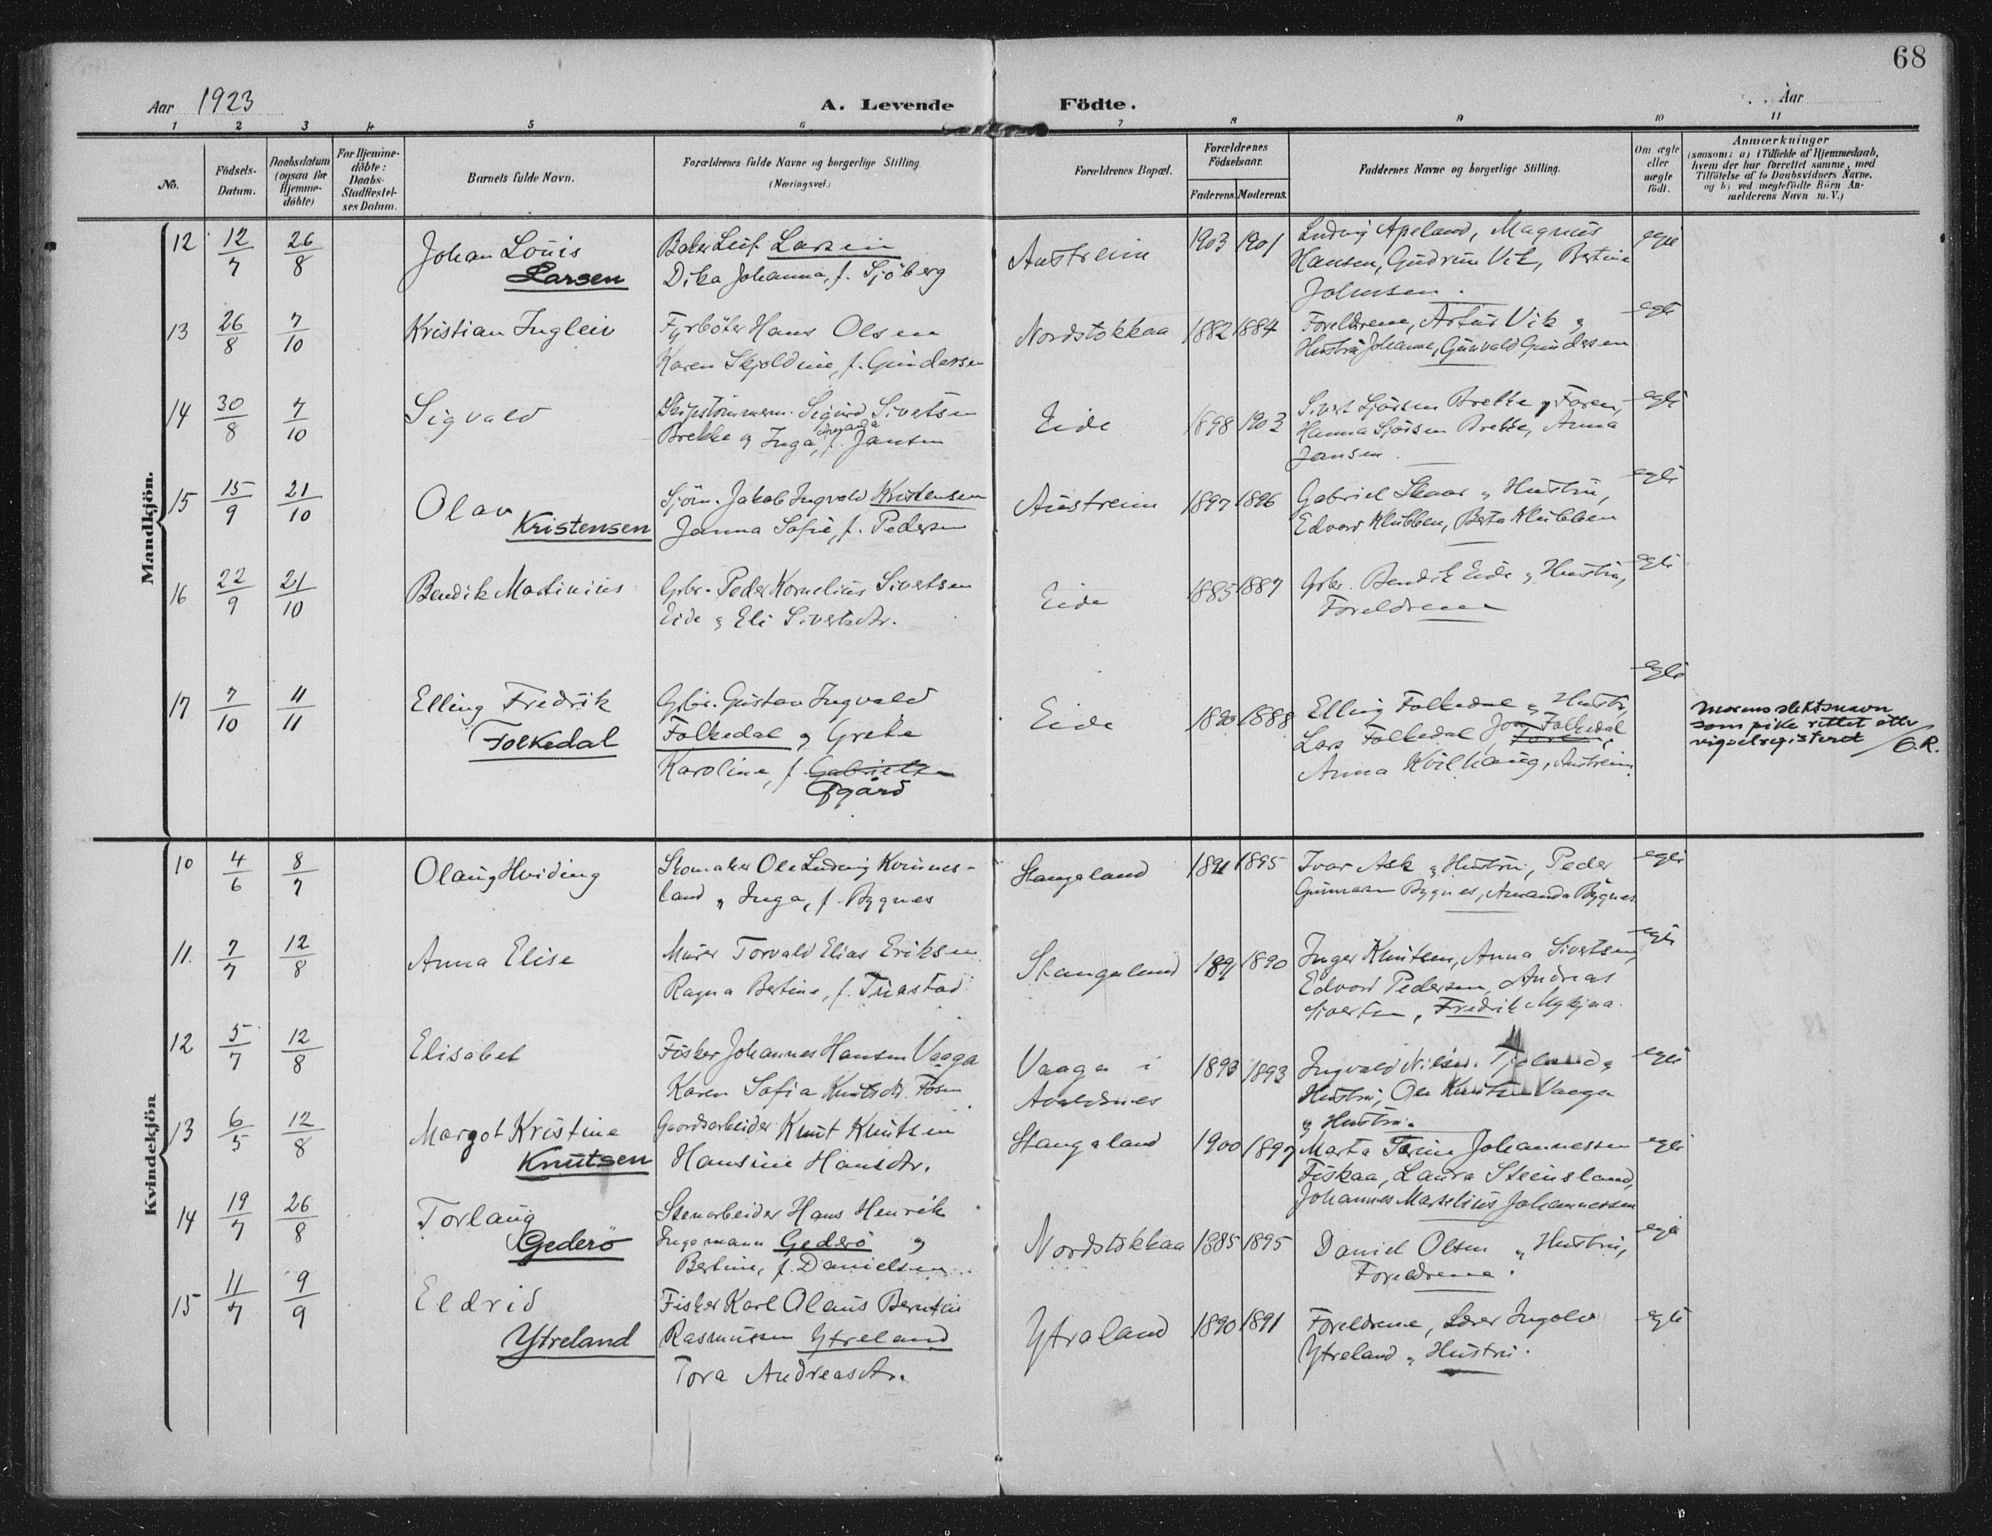 68
Aar 1923
A. Levende Födte.
Aar
1 2 3 4 5 6 7 8 9 10 11
No.
Födsels-
Datum.
Daabsdatum
(ogsaa for
Hjemme-
döbte)
For Hjemme-
döbte:
Daabs-
Stadfæstel-
ses Datum.
Barnets fulde Navn.
Forældrenes fulde Navne og borgerlige Stilling.
(Næringsvei.)
Forældrenes Bopæl.
Forældrenes
Födselsaar.
Faderens. Moderens.
Faddernes Navne og borgerlige Stilling.
Om ægte
eller
uægte
født.
Anmærkninger
(saasom: a) i Tilfælde af Hjemmedaab,
hvem der har forrettet samme, med
Tilföielse af to Daabsvidners Navne,
og b) ved uægtefödte Börn An-
melderens Navn m. V.)
Mandkjön.
12 12/7 26/8
Johan Louis
Larsen
Baker Leif Larsen
Dika Johanna, f. Sjöberg
Austreim
1903 1901
Ludvig Apeland, Magnus
Hansen, Gudrun Vik, Bertine
Johnsen.
egte
13 26/8 7/10
Kristian Ingleiv
Fyrböter Hans Olsen
Karen Skjoldine, f. Gundersen
Nordstokkaa
1882 1884
Foreldrene, Artur Vik og
Hustru Johanne, Gunvald Gundersen
egte
14 30/8 7/10
Sigvald
Skipstömmerm. Sigurd Sivertsen
Brekke og Inga, f. Jansen
Eide
1898 1903
Sivert Sjursen Brekke og Foren,
Hanna Sjursen Brekke, Anna
Jansen.
egte
15 15/9 21/10
Olav
Kristensen
Sjöm. Jakob Ingvald Kristensen
Janna Sofie, f. Pedersen
Austreim
1897 1896
Gabriel Skaar og Hustru,
Edvard Klubben, Berta Klubben
egte
16 22/9 21/10
Bendik Martinius
Grbr. Peder Kornelius Sivertsen
Eide og Eli Sivertsdtr.
Eide
1885 1887
Grbr. Bendik Eide og Hustru,
Foreldrene
egte
17 7/10 11/11
Elling Fredrik
Folkedal
Grbr. Gustav Ingvald
Folkedal og Grete
Karoline, f. Gabrielsen
Eide
1890 1888
Elling Folkedal og Hustru,
Lars Folkedal, Jon Folkedal
Anna Kvilhaug, Austreim.
egte
Morens slektsnavn
som pike rettet etter
vigselsregisteret /G.R.
Kvindekjön
10 4/6 8/7
Olaug Hviding
Skomaker Ole Ludvig Kvinnes-
land og Inga, f. Bygnes
Stangeland
1891 1895
Ivar Ask og Hustru, Peder
Gunnarsen Bygnes, Amanda Bygnes
egte
11. 7/7 12/8
Anna Elise
Murer Torvald Elias Eriksen
Ragna Bertine, f. Tuastad
Stangeland
1891 1890
Inger Knutsen, Anna Sivertsen,
Edvard Pedersen, Andreas
Sivertsen, Fredrik Mykjaa.
egte
12 5/7 12/8
Elisabet
Fisker Johannes Hansen Vaaga
Karen Sofia Knutsdtr. Fosen
Vaaga i
Avaldsnes
1893 1893
Ingvald Nilsen Tjoland og
Hustru, Ole Knutsen Vaaga
og Hustru.
egte
13 6/5 12/8
Margot Kristine
Knutsen
Gaardsarbeider Knut Knutsen
Hansine Hansdtr.
Stangeland
1900 1897
Marta Terine Johannessen
Fiskaa, Laura Steinsland,
Johannes Marselius Johannessen
egte
14 19/7 26/8
Torlaug
Gederö
Stenarbeider Hans Henrik
Ingemann Gederö og
Bertine, f. Danielsen.
Nordstokkaa
1885 1895
Daniel Olsen og Hustru,
Foreldrene.
egte
15 11/7 9/9
Eldrid
Ytreland
Fisker Karl Olaus Berntin
Rasmussen Ytreland
Tora Andreasdtr.
Ytraland
1890 1891
Foreldrene, Lærer Ingolv
Ytreland og Hustru.
egte